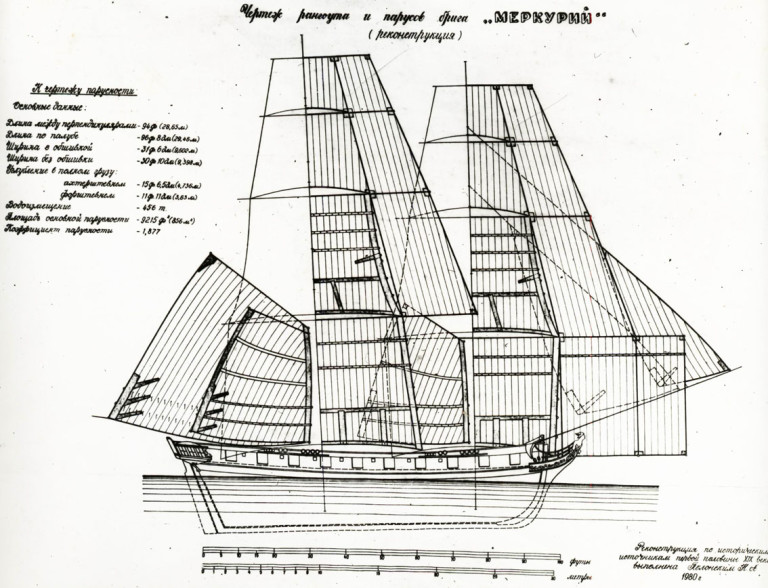 Чертеж рангоута и парусов брига „МЕРКУРИЙ“
(реконструкция)
К чертежу парусности
Основные данные:
Длина между перпендикулярами - 94ф (28,65м)
Длина по палубе - 96ф 8дм (29,46м)
Ширина с обшивкой - 31ф 6дм (9,600м)
Ширина без обшивки - 30ф 10дм (9,398м)
Углубление в полном грузу:
ахтерштевнем - 15ф 6,5дм (4,736м)
форштевнем - 11ф 11дм (3,63м)
Водоизмещение - 456 т
Площадь основной парусности - 9215 ф² (856м²)
Коэффициент парусности - 1,877
футы
метры
Реконструкция по историческим
источникам первой половины XIX века
выполнена
1980г